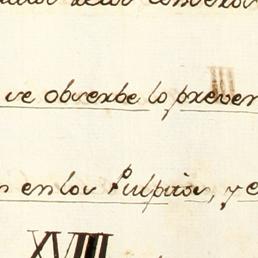 se obserbe lo preven
en los Pulpitos, y e
XVIII